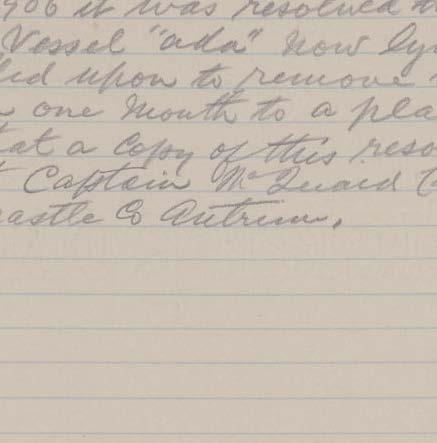 1906 it was resolved
Vessel "ada" now ly
led upon to remove
one month to a pla
at a Copy of this reso
Captain Mc Quaid
astle Co Antrim.